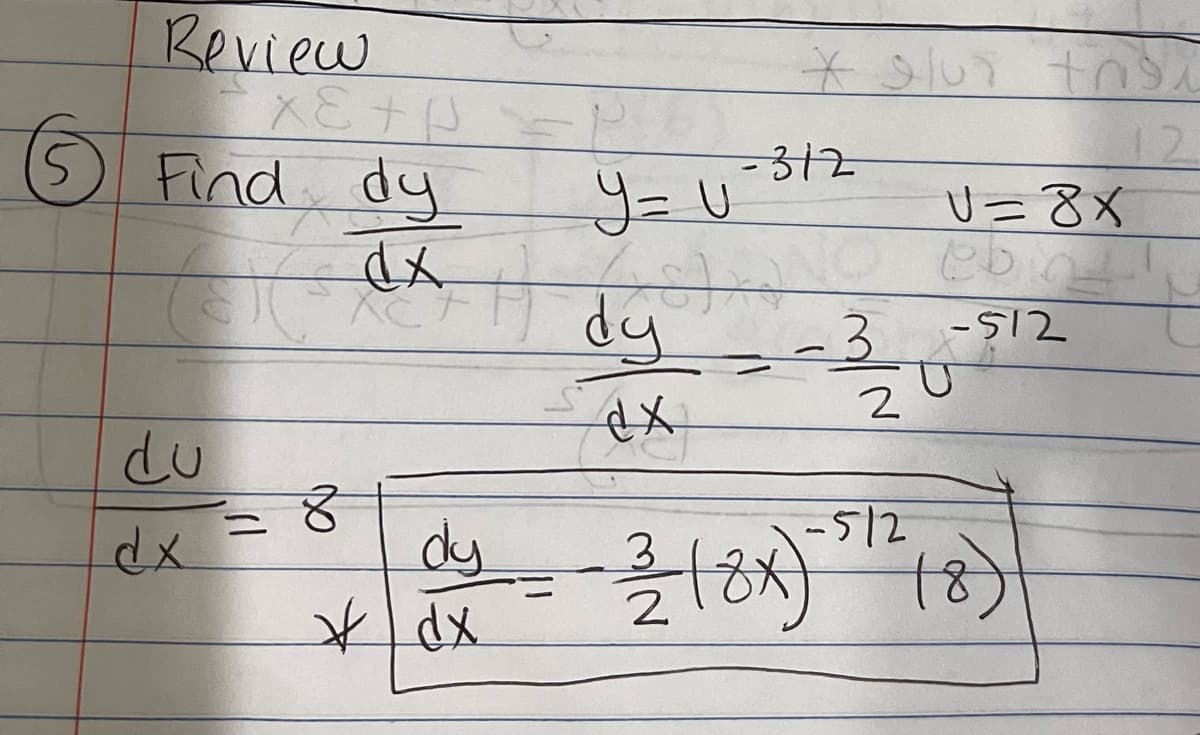 Review
⑤ Find dy/dx y = u^-3/2 u = 8x
dy/dx = -3/2 u^-5/2
du/dx = 8
* dy/dx = -3/2 (8x)^-5/2 (8)